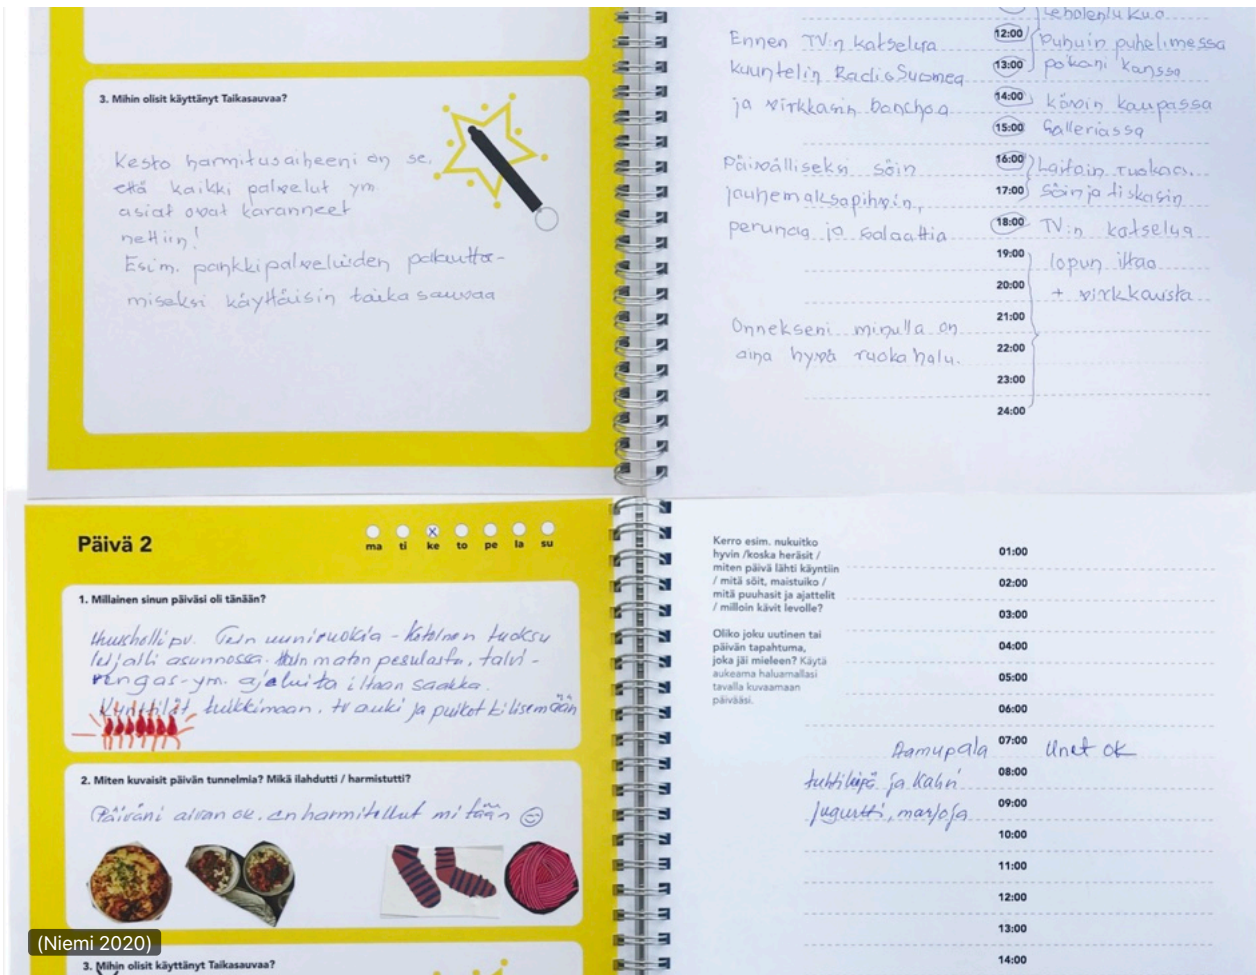 3. Mihin olisit käyttänyt Taikasauvaa?
Kesto harmitusaiheeni on se,
että kaikki palvelut ym.
asiat ovat karanneet
nettiin!
Esim. pankkipalveluiden palautta-
miseksi käyttäisin taikasauvaa
Ennen TV:n katselua
kuuntelin Radio Suomea
ja virkkasin banchoa
Päivälliseksi söin
jauhemaksapihvin,
perunaa ja salaattia
Onnekseni minulla on
aina hyvä ruokahalu.
lehdenluku
12:00 Puhuin puhelimessa
13:00 poikani kanssa
14:00 kävin kaupassa
15:00 Galleriassa
16:00 Laitoin ruokaa,
17:00 söin ja tiskasin
18:00 TV:n katselua
19:00 lopun iltaa
20:00 + virkkausta
21:00
22:00
23:00
24:00
Päivä 2
ma ti ke to pe la su
1. Millainen sinun päiväsi oli tänään?
Huushollipv. Tein uuniruokia - Kotoinen tuoksu
leijaili asunnossa. Hain maton pesulasta, talvi-
rengas- ym. ajeluita iltaan saakka.
Kynttilät tuikkimaan, tv auki ja puikot kilisemään
2. Miten kuvaisit päivän tunnelmia? Mikä ilahdutti / harmistutti?
Päiväni aivan ok, en harmitellut mitään
3. Mihin olisit käyttänyt Taikasauvaa?
(Niemi 2020)
Kerro esim. nukuitko
hyvin /koska heräsit /
miten päivä lähti käyntiin
/ mitä söit, maistuiko /
mitä puuhasit ja ajattelit
/ milloin kävit levolle?
Oliko joku uutinen tai
päivän tapahtuma,
joka jäi mieleen? Käytä
aukeama haluamallasi
tavalla kuvaamaan
päivääsi.
01:00
02:00
03:00
04:00
05:00
06:00
Aamupala 07:00 Unet ok
08:00
ja Kahvi
09:00
jugurtti, marjoja
10:00
11:00
12:00
13:00
14:00